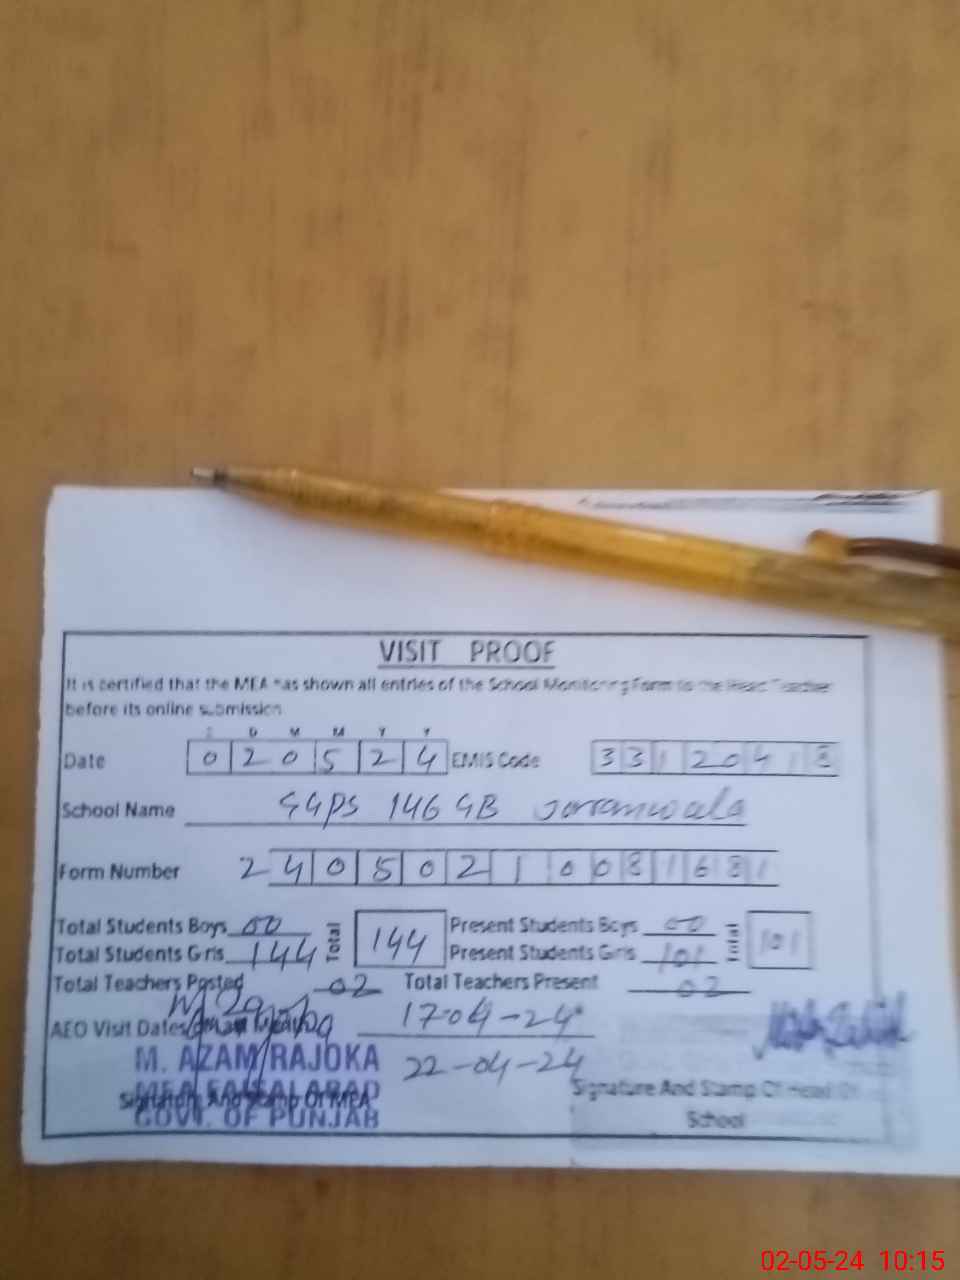 VISIT PROOF
It is certified that the MEA has shown all entries of the School Monitoring Form to the Head Teacher
before its online submission
D M M Y Y
Date 020524 EMIS Code 33120418
School Name GGPS 146 GB Jarranwala
Form Number 24050210081681
Total Students Boys 00 Total 144 Present Students Boys 00 Total 101
Total Students Girls 144 Present Students Girls 101
Total Teachers Posted 02 Total Teachers Present 02
AEO Visit Dates 17-04-24
22-04-24
M. AZAM RAJOKA
MEA FAISALABAD
GOVT. OF PUNJAB
Signature And Stamp Of MEA
Signature And Stamp Of Head Of
School
02-05-24 10:15